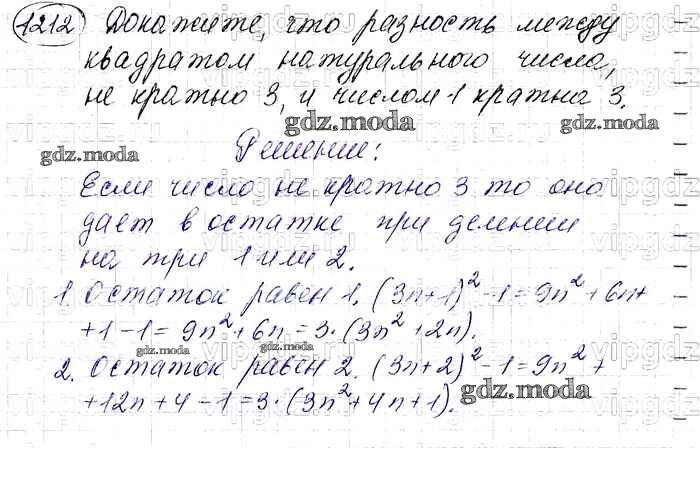 1212 Докажите, что разность между
квадратом натурального числа,
не кратно 3, и числом 1 кратна 3.
gdz.moda gdz.moda
gdz.moda Решение:
Если число не кратно 3 то оно
дает в остатке при делении
на три 1 или 2.
1 Остаток равен 1. (3n+1)² -1 = 9n² + 6n+
+1-1 = 9n² + 6n = 3·(3n² + 2n).
gdz.moda gdz.moda
2. Остаток равен 2. (3n+2)² -1 = 9n² +
gdz.moda
+12n+4-1 = 3·(3n²+4n+1).